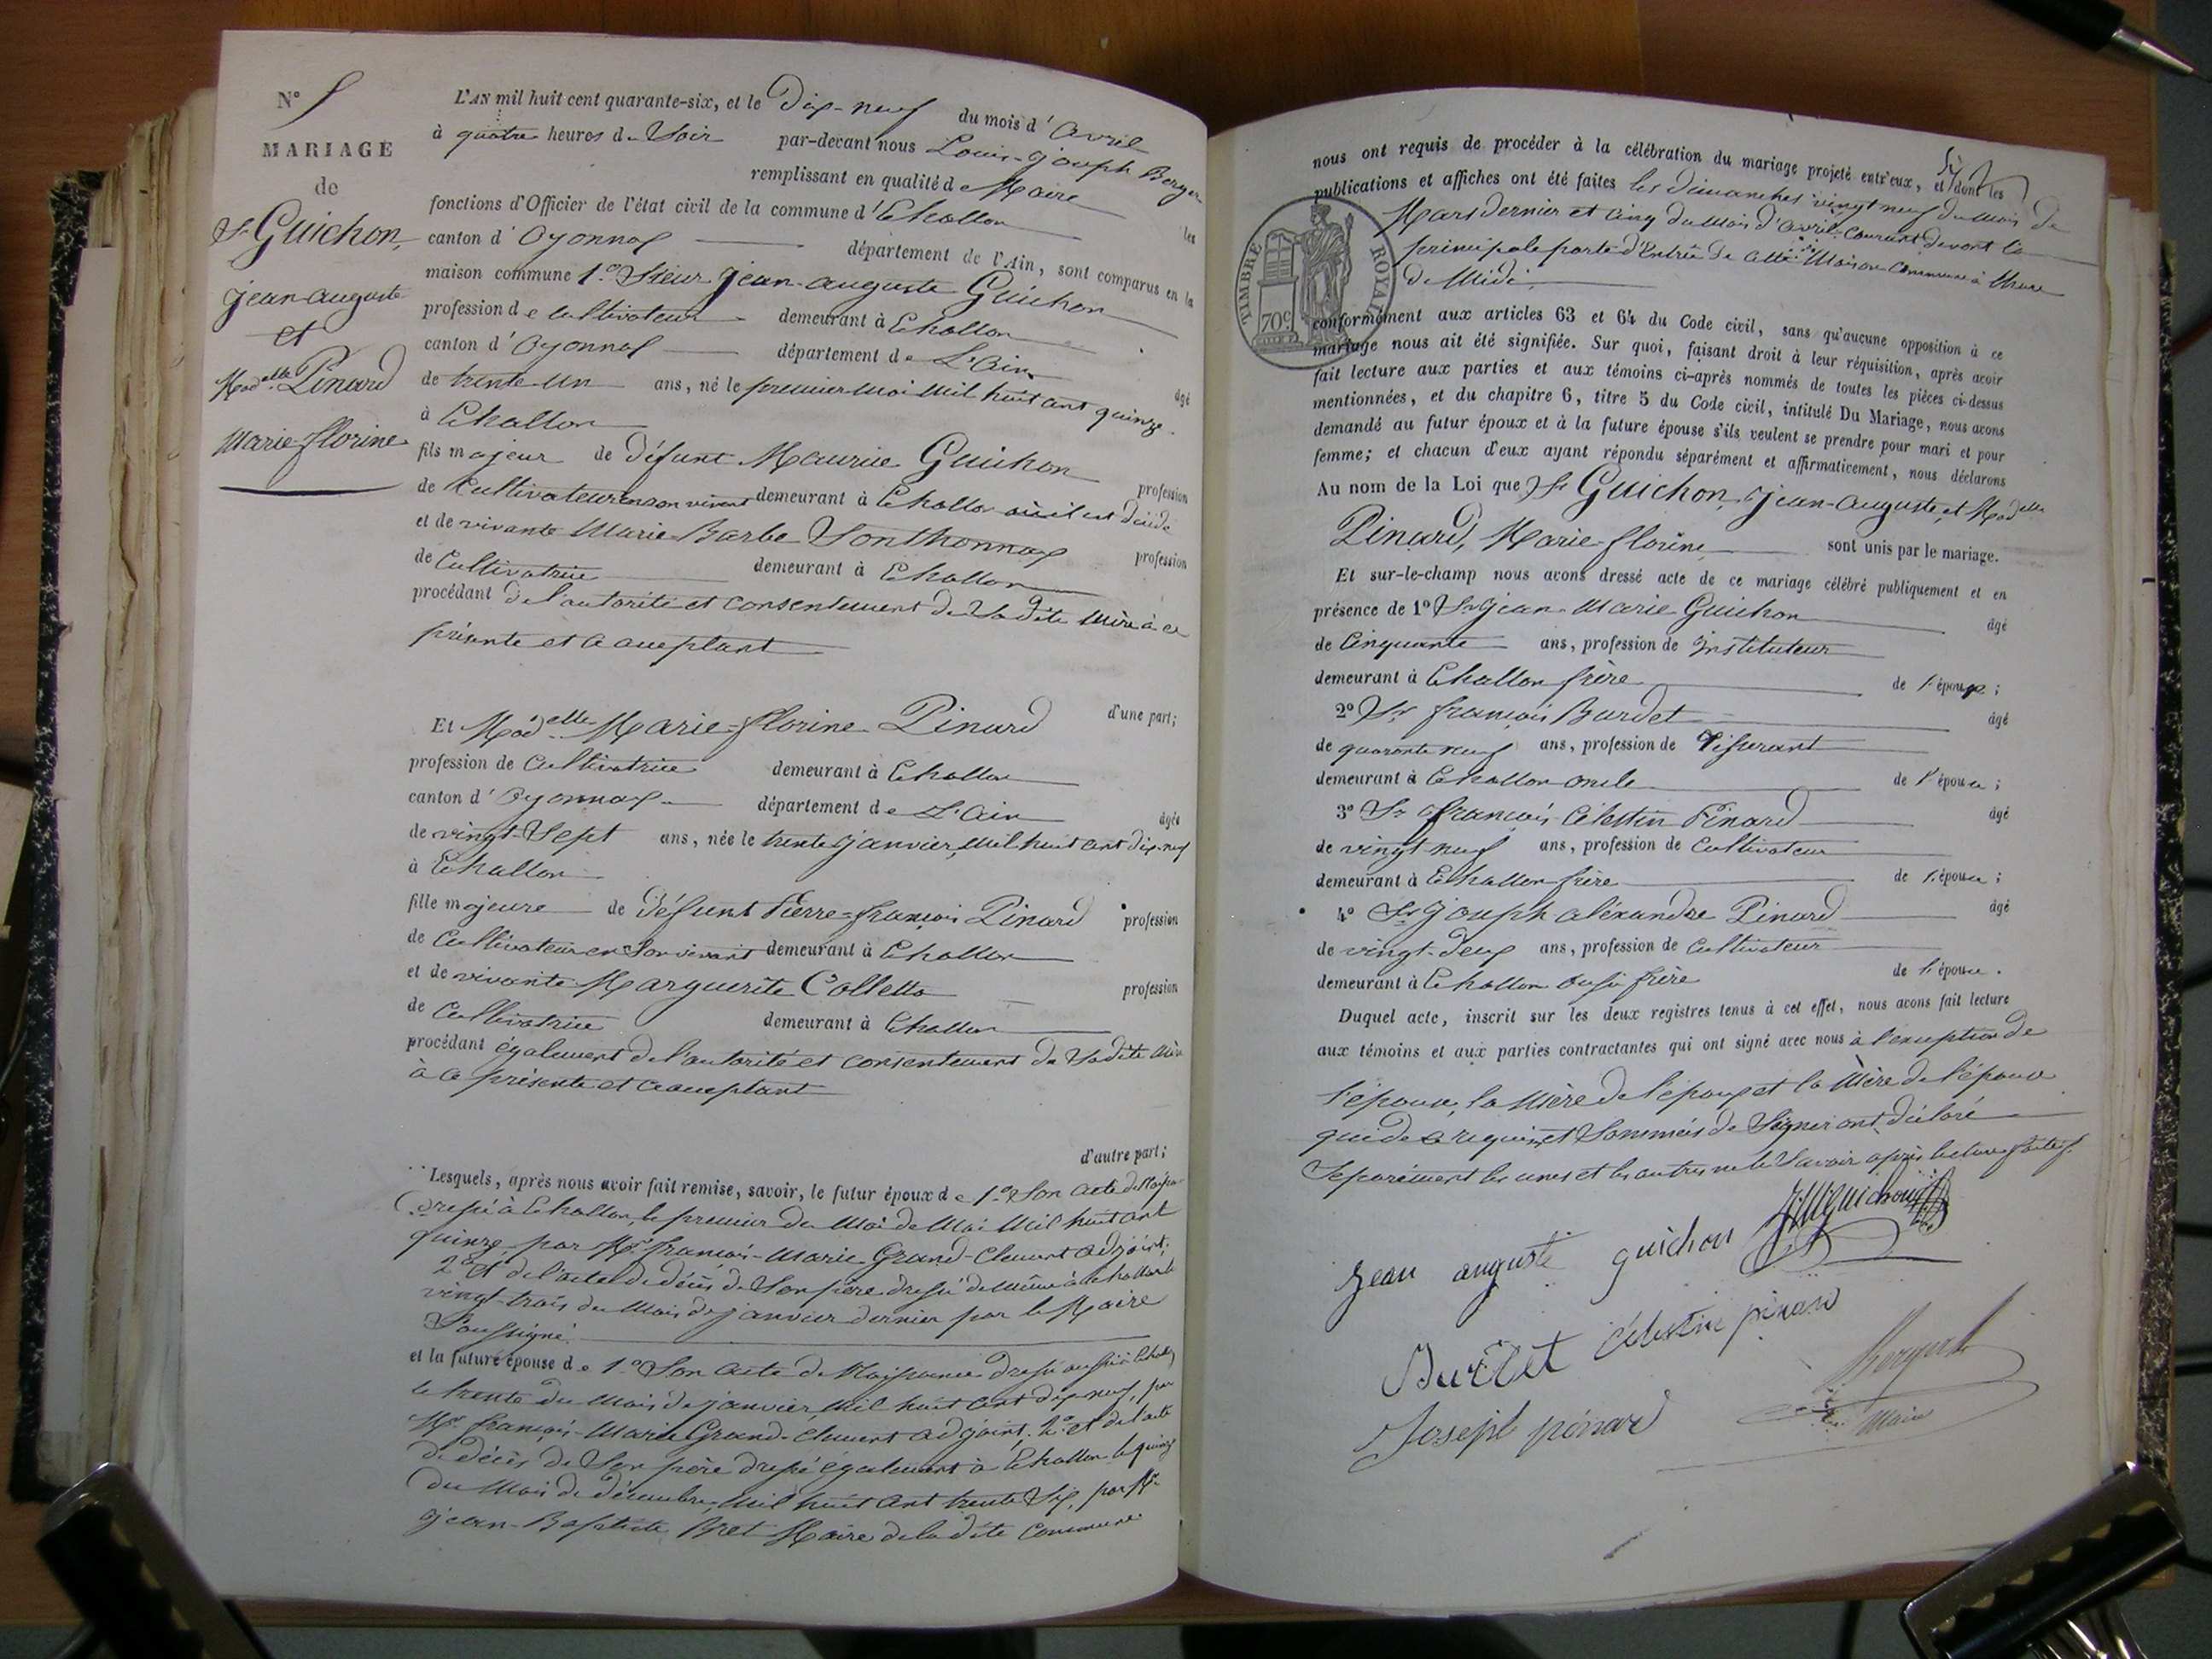 N° 5
MARIAGE
de
Sr Guichon
jean-auguste
et
Mad.elle Pinard
Marie-florine
L'AN mil huit cent quarante-six, et le Dix-neuf du mois d'avril
à quatre heures du Soir par-devant nous Louis-Joseph
remplissant en qualité de Maire les
fonctions d'Officier de l'état civil de la commune d'Echallon
canton d'Oyonnax département de l'Ain, sont comparus en la
maison commune 1.° Sieur jean-auguste Guichon
profession de cultivateur demeurant à Echallon
canton d'Oyonnax département de L'ain âgé
de trente-un ans, né le premier mai mil huit cent quinze
à Echallon
fils majeur de Défunt Maurice Guichon profession
de Cultivateur en son vivant demeurant à Echallon où il est décédé
et de vivante Marie-Barbe Sonthonnax profession
de Cultivatrice demeurant à Echallon
procédant de l'autorité et consentement de Sa dite Mère à ce
présente et acceptant
d'une part;
Et Mad.elle Marie-florine Pinard
profession de Cultivatrice demeurant à Echallon
canton d'Oyonnax département de L'ain âgée
de vingt-Sept ans, née le trente janvier mil huit cent dix-neuf
à Echallon
fille majeure de Défunt Pierre-françois Pinard profession
de Cultivateur en Son vivant demeurant à Echallon
et de vivante Marguerite Colletta profession
de Cultivatrice demeurant à Echallon
procédant également de l'autorité et consentement de Sa dite Mère
à ce présente et acceptant
d'autre part;
Lesquels, après nous avoir fait remise, savoir, le futur époux de 1.° Son acte de
Dressé à Echallon, le premier du Moi de Mai Mil huit cent
quinze par Mr françois-Marie Grand-Clement adjoint;
2.° Et de l'acte de décès de Son père dressé de même à Echallon le
vingt-trois du Mois de janvier dernier par le Maire
Soussigné.
et la future épouse de 1.° Son acte de Naissance dressé aussi à
le trente du Mois de janvier Mil huit cent dix-neuf, par
Mr françois-Marie Grand-Clement adjoint; 2.° et de l'acte
de décès de Son père dressé également à Echallon le quinze
du Mois de décembre Mil huit cent trente Six, par Mr
jean-Baptiste Bret Maire de la dite Commune
nous ont requis de procéder à la célébration du mariage projeté entr'eux, et dont les
publications et affiches ont été faites les dimanches vingt neuf du Mois de
Mars dernier et cinq du Mois d'avril Courant devant la
principale porte d'Entrée de cette Maison Commune à
de Midi.
TIMBRE ROYAL
70c.
conformément aux articles 63 et 64 du Code civil, sans qu'aucune opposition à ce
mariage nous ait été signifiée. Sur quoi, faisant droit à leur réquisition, après avoir
fait lecture aux parties et aux témoins ci-après nommés de toutes les pièces ci-dessus
mentionnées, et du chapitre 6, titre 5 du Code civil, intitulé Du Mariage, nous avons
demandé au futur époux et à la future épouse s'ils veulent se prendre pour mari et pour
femme; et chacun d'eux ayant répondu séparément et affirmativement, nous déclarons
Au nom de la Loi que Sr Guichon, jean-auguste, et Mad.elle
Pinard, Marie-florine sont unis par le mariage.
Et sur-le-champ nous avons dressé acte de ce mariage célébré publiquement et en
présence de 1° Sr jean-Marie Guichon âgé
de Cinquante ans, profession de Instituteur
demeurant à Echallon frère de l'époux;
2° Sr françois Burdet âgé
de quarante neuf ans, profession de Tisserant
demeurant à Echallon oncle de l'épouse;
3° Sr françois Célestin Pinard âgé
de vingt-neuf ans, profession de Cultivateur
demeurant à Echallon frère de l'épouse;
4° Sr joseph aléxandre Pinard âgé
de vingt-deux ans, profession de Cultivateur
demeurant à Echallon aussi frère de l'épouse.
Duquel acte, inscrit sur les deux registres tenus à cet effet, nous avons fait lecture
aux témoins et aux parties contractantes qui ont signé avec nous à l'exception de
l'épouse, la Mère de l'époux et la Mère de l'épouse
qui de ce requis et Sommées de Signer ont déclaré
Séparément les unes et les autres ne le Savoir après lecture faite
jean auguste guichon JMGuichon
Burdet célestin pinard
Joseph pinard
Maire